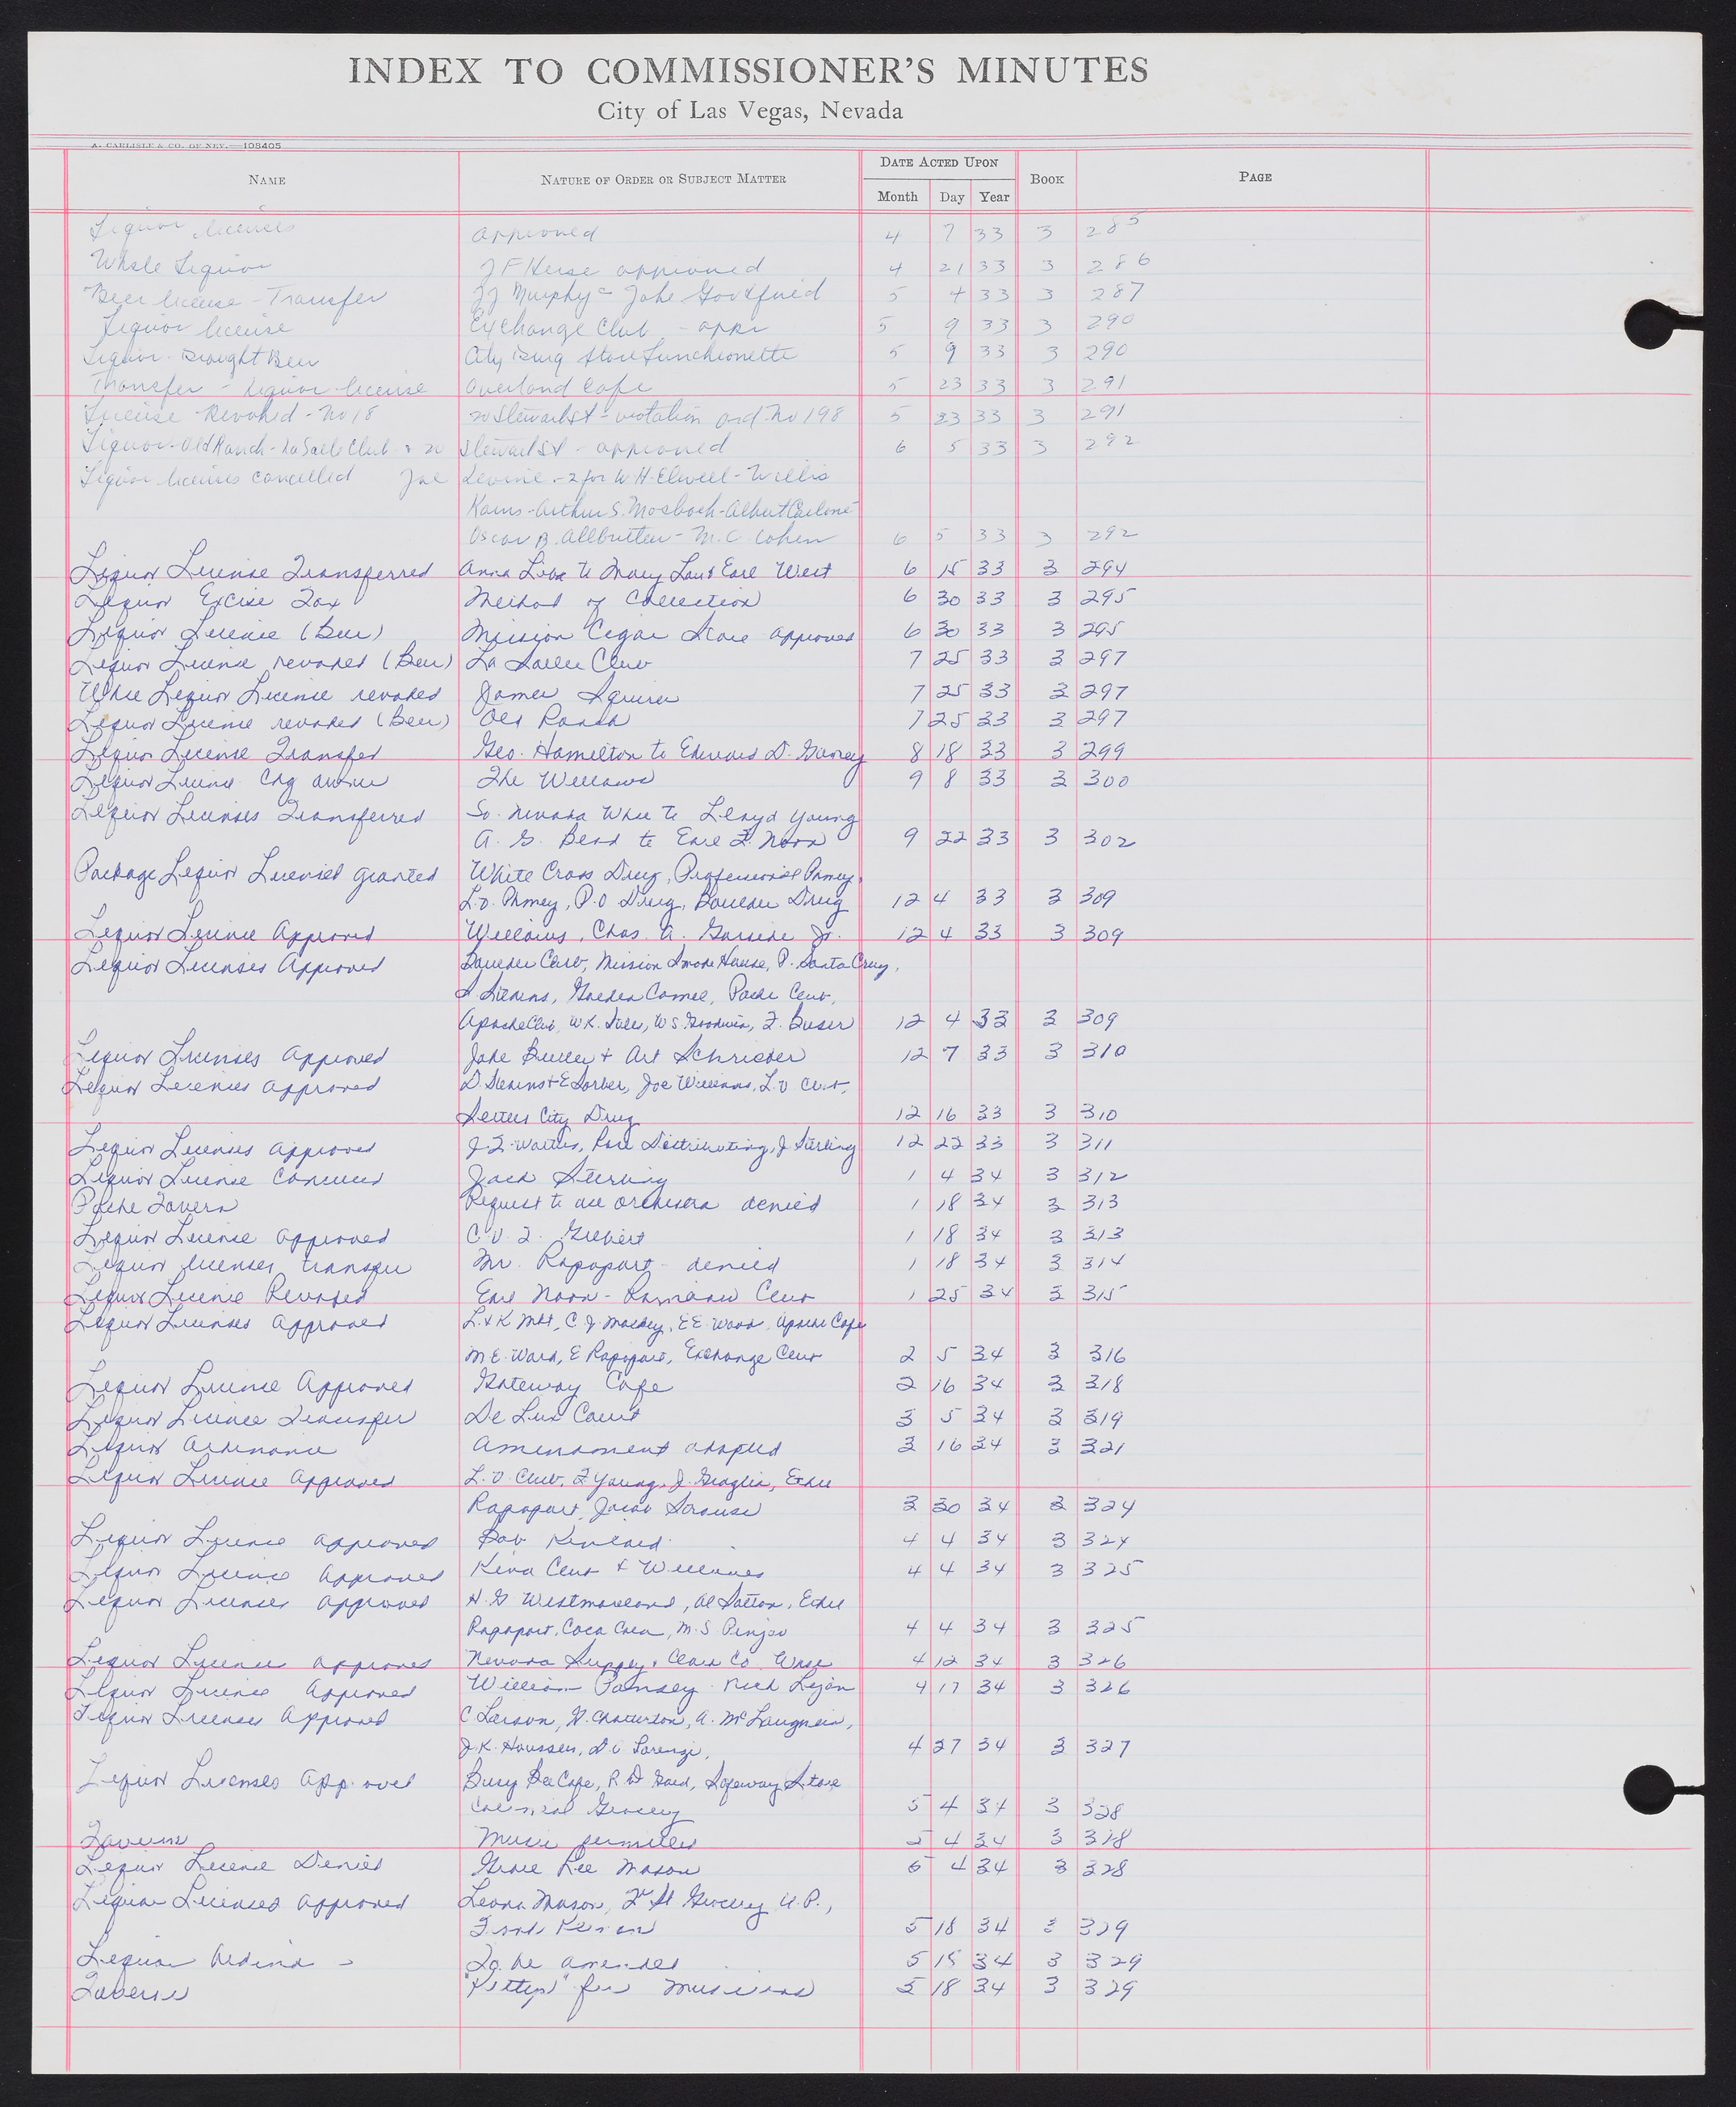 INDEX TO COMMISSIONER'S MINUTES
City of Las Vegas, Nevada
A. CARLISLE & CO. OF NEV.—108405
NAME NATURE OF ORDER OR SUBJECT MATTER DATE ACTED UPON BOOK PAGE
Month Day Year
Liquor licenses approved 4 7 33 3 285
Whsle Liquor J F Hesse approved 4 21 33 3 286
Beer license - Transfer JJ Murphy - Jake Gottfried 5 4 33 3 287
Liquor license Exchange Club - appr 5 9 33 3 290
Liquor - Draught Beer City Drug Store Luncheonette 5 9 33 3 290
Transfer - liquor license Overland Cafe 5 23 33 3 291
License Revoked - No 18 20 Stewart St - violation ord. No 198 5 23 33 3 291
Liquor - Old Ranch - La Salle Club & 20 Stewart St - approved 6 5 33 3 292
Liquor licenses cancelled Joe Levine - 2 for W. H. Elwell - Willis
Arthur S. Mosbach - Albert
Oscar B. Allbritten - M. C. Cohen 6 5 33 3 292
Liquor License Transferred Anna to Mary Lou & Earl West 6 15 33 3 294
Liquor Excise Tax Method of Collection 6 30 33 3 295
Liquor License (Beer) Mission Cigar Store approved 6 30 33 3 295
Liquor License revoked (Beer) La Salle Club 7 25 33 3 297
Whse Liquor License revoked James Squires 7 25 33 3 297
Liquor License revoked (Beer) Old Ranch 7 25 33 3 297
Liquor License Transfer Geo. Hamilton to Edward D. 8 18 33 3 299
Liquor License Chg owner The Willows 9 8 33 3 300
Liquor Licenses Transferred So. Nevada Whse to Lloyd Young
A. G. to Earl F. Noon 9 22 33 3 302
Package Liquor Licenses granted White Cross Drug, Professional Phmcy,
L.V. Phmcy, P.O Drug, Boulder Drug 12 4 33 3 309
Liquor License Approved Williams, Chas. A. Garside Jr. 12 4 33 3 309
Liquor Licenses Approved Boulder Club, Mission Smoke House, P. Santa Cruz,
S Stearns, Golden Camel, Club,
Apache Club, W K. W S. Goodwin, F. Buser 12 4 33 3 309
Liquor Licenses Approved Jake Butler & Art Schriever 12 7 33 3 310
Liquor Licenses approved D. Stearns & E Sorber, Joe Williams, L.V Club,
Sellers City Drug 12 16 33 3 310
Liquor Licenses approved J.F. Walters, Rose Distributing, J Sterling 12 22 33 3 311
Liquor License Cancelled Jack Sterling 1 4 34 3 312
Tavern Request to use orchestra denied 1 18 34 3 313
Liquor License approved C.V.T. Gilbert 1 18 34 3 313
Liquor licenses transfer Mr. Rapaport - denied 1 18 34 3 314
Liquor License Revoked Earl Noon - Club 1 25 34 3 315
Liquor Licenses approved L. & K Mkt, C J E.E. Ward, Apache Cafe
M E. Ward, E Rapaport, Exchange Club 2 5 34 3 316
Liquor License Approved Gateway Cafe 2 16 34 3 318
Liquor License Transfer De Lux Court 3 5 34 3 319
Liquor Ordinance Amendment adopted 3 16 34 3 321
Liquor License Approved L.V. Club, F Young, J. Graglia, Ethel
Rapaport, Jacob Strouse 3 30 34 3 324
Liquor License approved Bob Kinland 4 4 34 3 324
Liquor License Approved Kiva Club & Williams 4 4 34 3 325
Liquor Licenses approved H. G Westmoreland, Al Sutton, Ethel
Rapaport, Coca Cola, M.S. 4 4 34 3 325
Liquor Licenses approved Nevada Supply, Clark Co Whse 4 12 34 3 326
Liquor License Approved William Nick Lejan 4 17 34 3 326
Liquor Licenses Approved C. Larson, G. Chatterton, A. McLaughlin,
J.K. Houssels, D.V. Lorenzi, 4 27 34 3 327
Liquor Licenses Approved Busy Bee Cafe, R D Safeway Store
Colonial Grocery 5 4 34 3 328
Taverns Music permitted 5 4 34 3 328
Liquor License Denied Grace Lee Mason 5 4 34 3 328
Liquor Licenses approved Leona Mason, F St Grocery, U.P.,
5 18 34 3 329
Liquor To be amended 5 18 34 3 329
Taverns "Kittys" for musicians 5 18 34 3 329